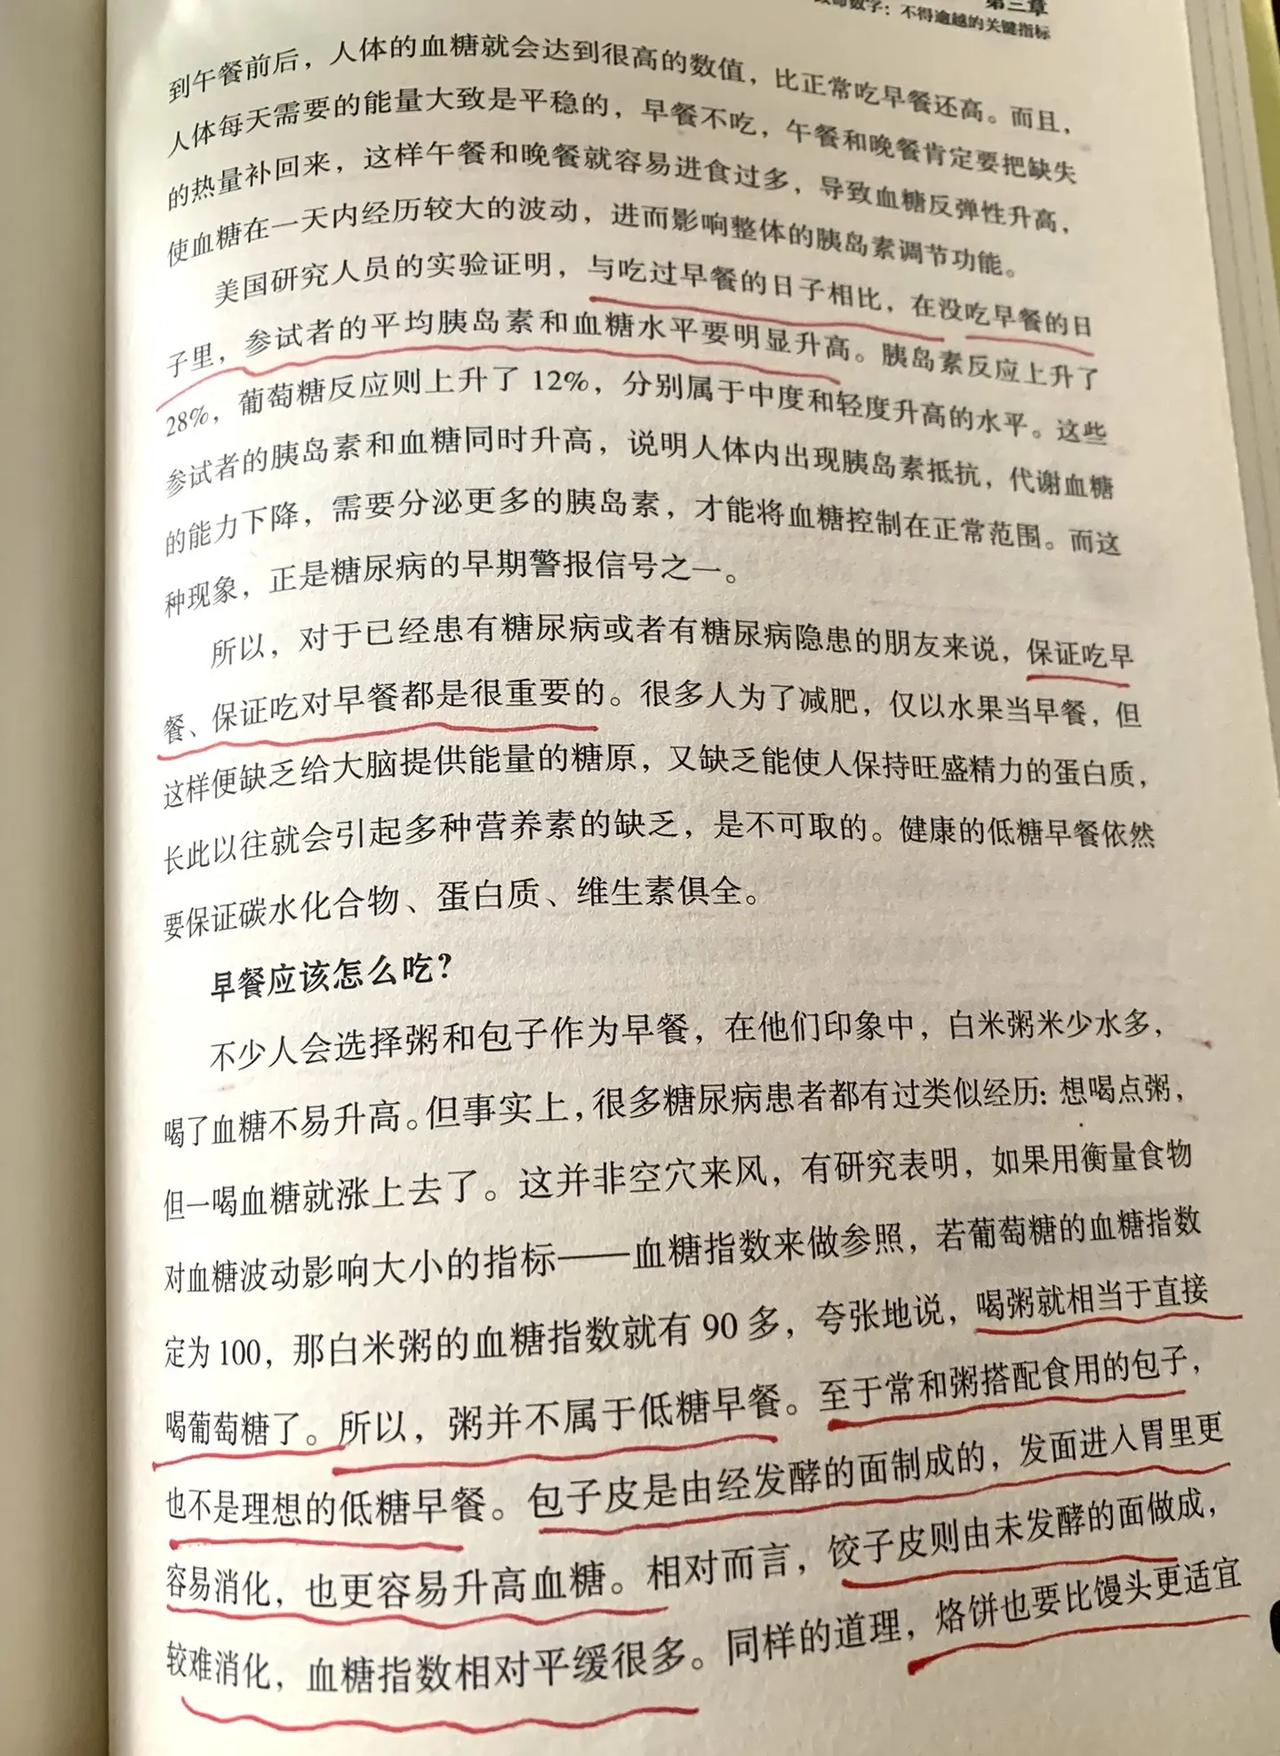 第三章
致命数字：不得逾越的关键指标
到午餐前后，人体的血糖就会达到很高的数值，比正常吃早餐还高。而且，
人体每天需要的能量大致是平稳的，早餐不吃，午餐和晚餐肯定要把缺失
的热量补回来，这样午餐和晚餐就容易进食过多，导致血糖反弹性升高，
使血糖在一天内经历较大的波动，进而影响整体的胰岛素调节功能。
美国研究人员的实验证明，与吃过早餐的日子相比，在没吃早餐的日
子里，参试者的平均胰岛素和血糖水平要明显升高。胰岛素反应上升了
28%，葡萄糖反应则上升了12%，分别属于中度和轻度升高的水平。这些
参试者的胰岛素和血糖同时升高，说明人体内出现胰岛素抵抗，代谢血糖
的能力下降，需要分泌更多的胰岛素，才能将血糖控制在正常范围。而这
种现象，正是糖尿病的早期警报信号之一。
所以，对于已经患有糖尿病或者有糖尿病隐患的朋友来说，保证吃早
餐、保证吃对早餐都是很重要的。很多人为了减肥，仅以水果当早餐，但
这样便缺乏给大脑提供能量的糖原，又缺乏能使人保持旺盛精力的蛋白质，
长此以往就会引起多种营养素的缺乏，是不可取的。健康的低糖早餐依然
要保证碳水化合物、蛋白质、维生素俱全。
早餐应该怎么吃？
不少人会选择粥和包子作为早餐，在他们印象中，白米粥米少水多，
喝了血糖不易升高。但事实上，很多糖尿病患者都有过类似经历：想喝点粥，
但一喝血糖就涨上去了。这并非空穴来风，有研究表明，如果用衡量食物
对血糖波动影响大小的指标——血糖指数来做参照，若葡萄糖的血糖指数
定为100，那白米粥的血糖指数就有90多，夸张地说，喝粥就相当于直接
喝葡萄糖了。所以，粥并不属于低糖早餐。至于常和粥搭配食用的包子，
也不是理想的低糖早餐。包子皮是由经发酵的面制成的，发面进入胃里更
容易消化，也更容易升高血糖。相对而言，饺子皮则由未发酵的面做成，
较难消化，血糖指数相对平缓很多。同样的道理，烙饼也要比馒头更适宜